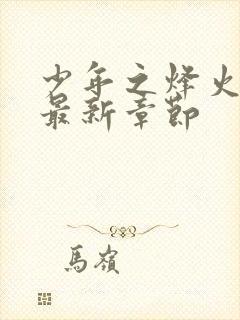 少年之烽火
最新章節
馬嶺